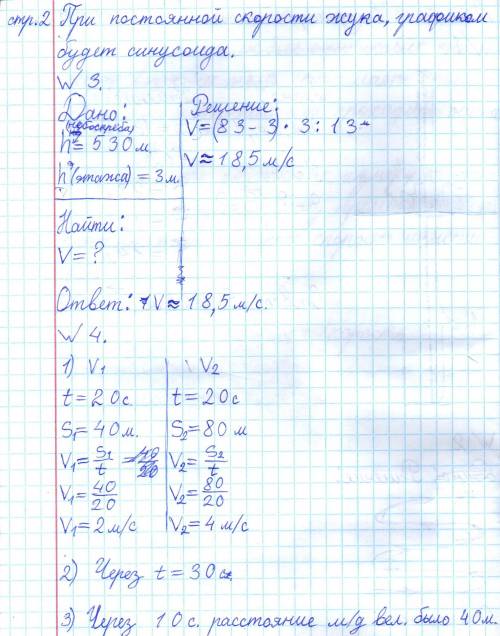 стр.2 При постоянной скорости жука, графиком
будет синусоида.
№ 3.
Дано:
(небоскреба)
h = 530 м
h (этажа) = 3 м.
Найти:
V = ?
Решение:
V = (83 - 3) · 3 : 13
V ≈ 18,5 м/с
Ответ: V ≈ 18,5 м/с.
№ 4.
1) V₁
t = 20 с.
S₁ = 40 м.
V₁ = S₁/t = 40/20
V₁ = 40/20
V₁ = 2 м/с
V₂
t = 20 с
S₂ = 80 м
V₂ = S₂/t
V₂ = 80/20
V₂ = 4 м/с
2) Через t = 30 с.
3) Через 10 с. расстояние м/д вел. было 40 м.